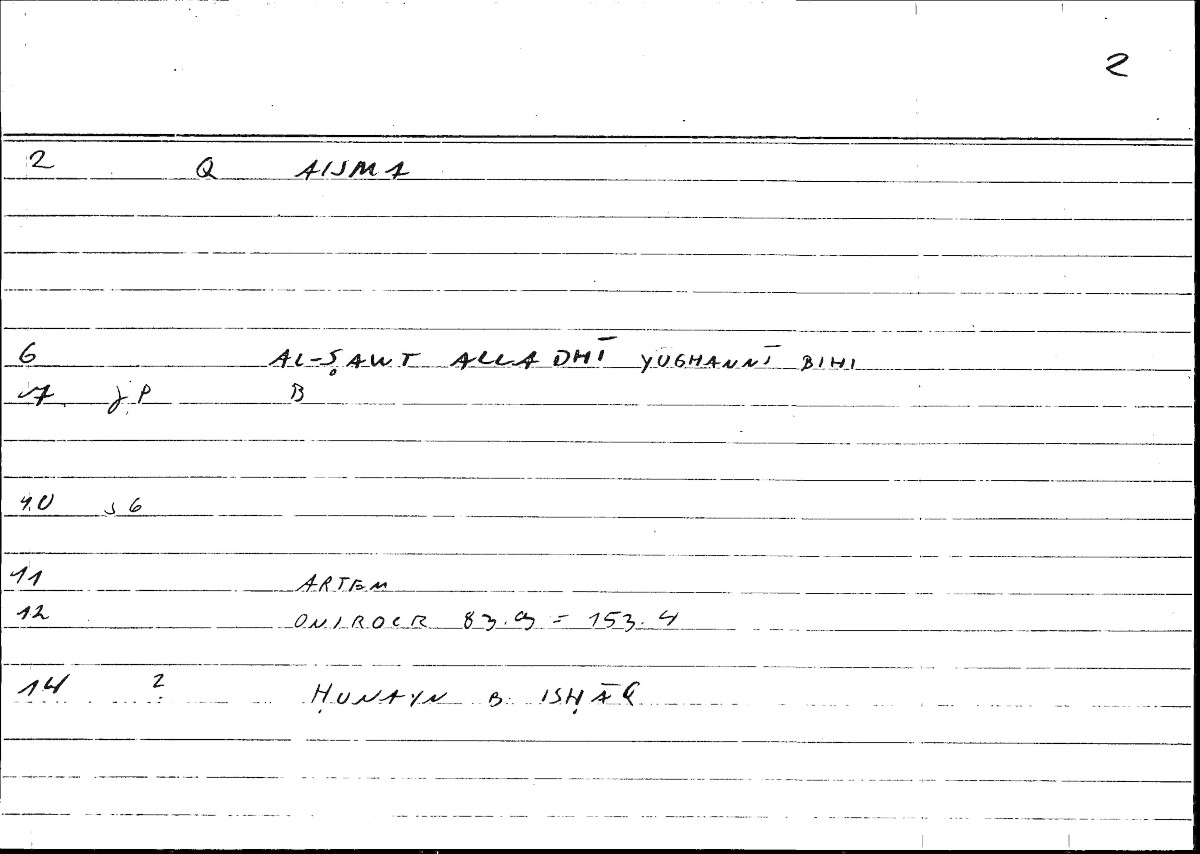 2
2 Q AISMA
6 AL-ṢAWT ALLADHĪ YUGHANNĪ BIHI
7 jP B
10 s 6
11 ARTEM
12 ONIROCR 83.9 = 153.4
14 2 ḤUNAYN B. ISḤĀQ